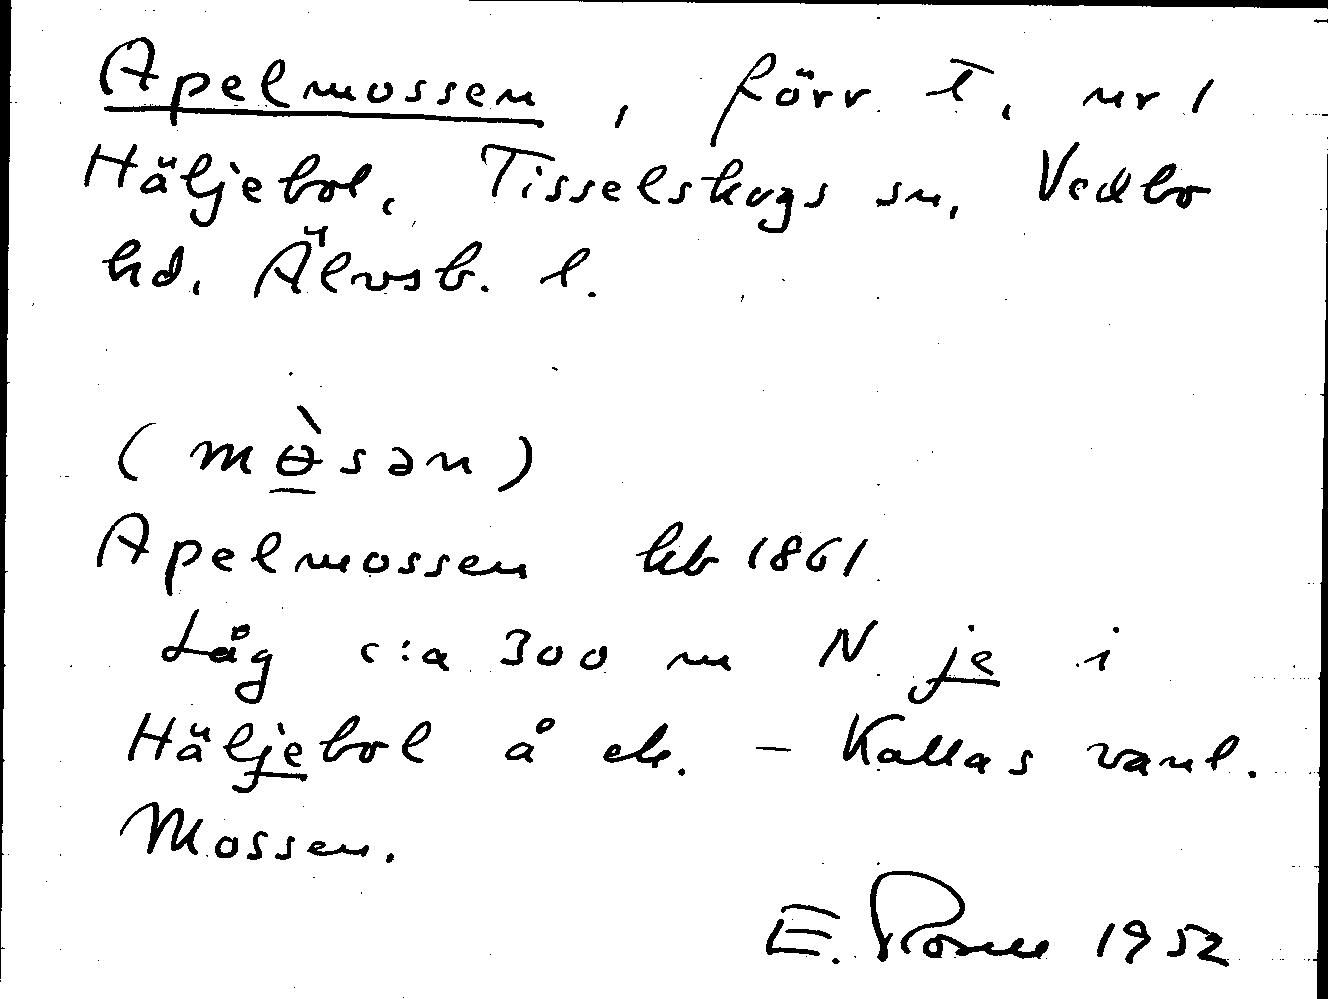 Apelmossen, förr T. nr 1
Häljebol, Tisselskogs sn, Vedbo
hd, Älvsb. l.
(mɵ̀sən)
Apelmossen hb 1861
Låg c:a 300 m N je i
Häljebol å ek. – Kallas vanl.
Mossen.
E. 1952